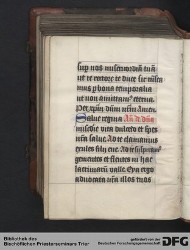 sup nos misericordiam tuam
ut te rectore te duce sic transe
amus p bona temporalia
ut non amittam9 eterna.
Per xpm dnm nrm Amen.
Salue regina
misericordie vita dulcedo et spes
nra salue. Ad te clamamus
exules filij eue. Ad te suspiram9
gementes et flentes in hac
lacrimarum valle. Eya ergo
aduocata nra illos tuos
Bibliothek des
Bischöflichen Priesterseminars Trier
gefördert von der
Deutschen Forschungsgemeinschaft
DFG